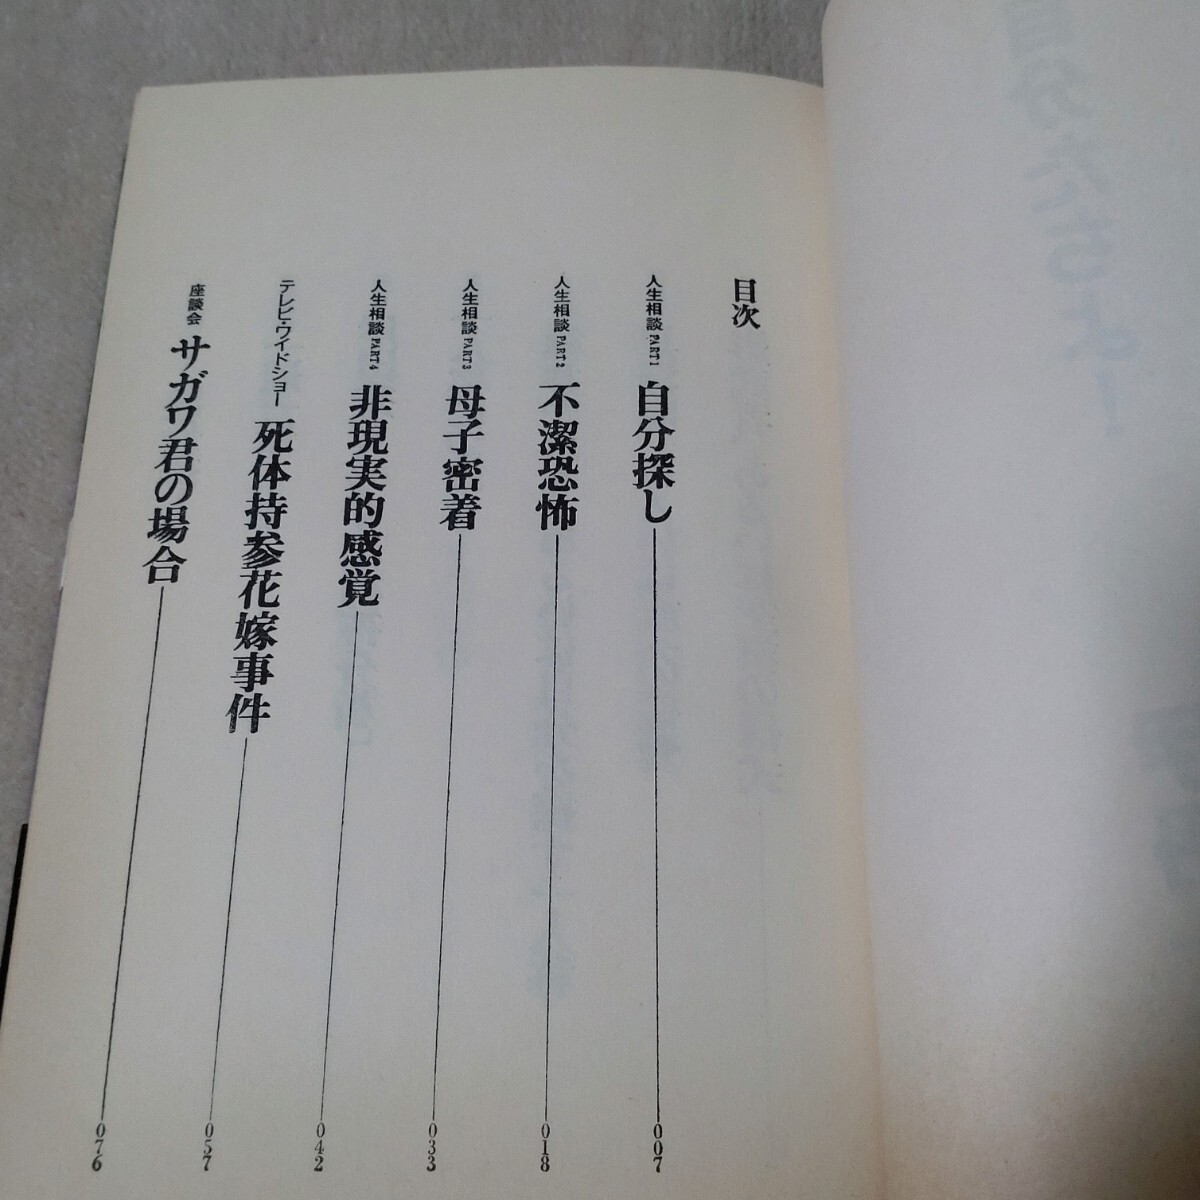 目次
人生相談PART1 自分探し 007
人生相談PART2 不潔恐怖 018
人生相談PART3 母子密着 033
人生相談PART4 非現実的感覚 042
テレビ・ワイドショー 死体持参花嫁事件 057
座談会 サガワ君の場合 076